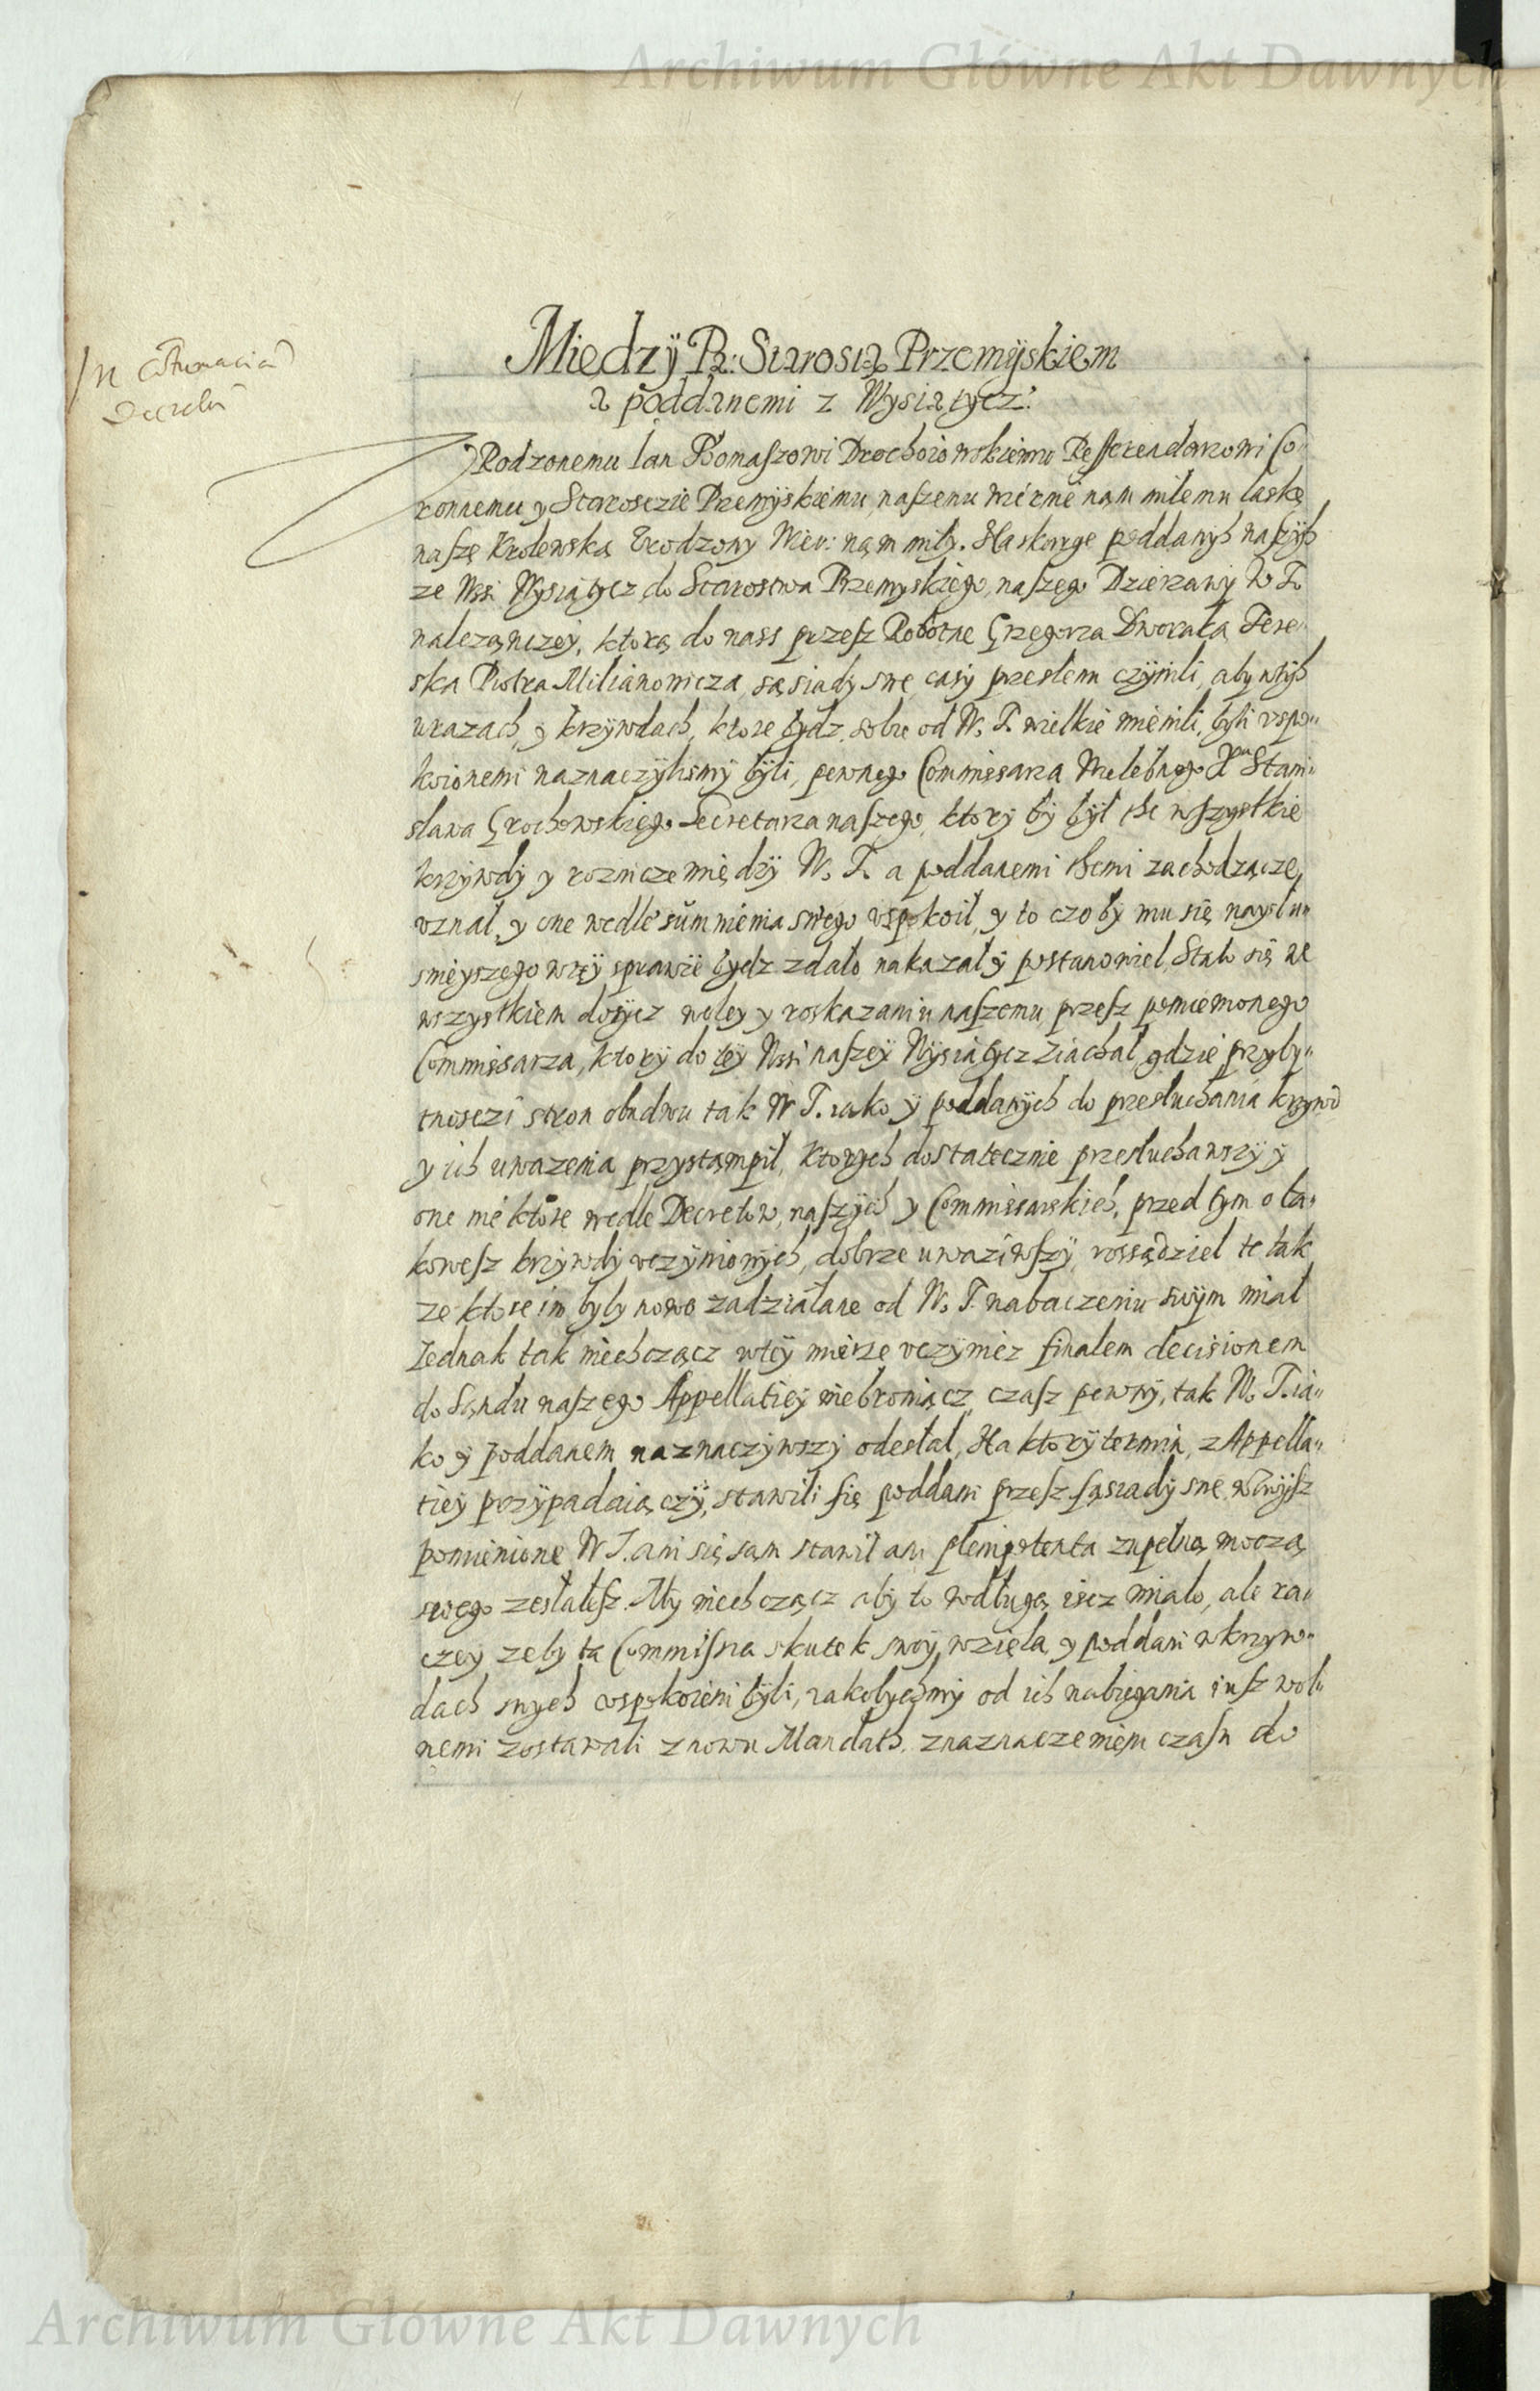 Archiwum Główne Akt Dawnych
In Contumaciam
Decretum
Miedzÿ P: Starostą Przemÿskiem
a poddanemi z Wysiatycz:
Vrodzonemu Ian Thomaszowi Drochoiowskiemu Refferendarzowi Co„
ronnemu y Starosczie Przemÿskiemu, naszemu wiernie nąm miłemu laskę
naszę Krolewską Vrodzony Wier: nąm miły. Na skargę poddanÿch naszÿch
ze Wsi Wysiątycz do Starostwa Przemyskiego, naszego Dzierzawÿ W. T.
nalezączeÿ, ktorą do nass przesz Robotne Grzegorza Dworaka, Fere„
ska Piotra Milianowicza, sąsiadÿ swe, casÿ przeslem czÿnili, aby wtÿch
urazach, y krzywdach, ktore bydz sobie od W. T. wielkie mienili, byli vspo„
koionemi naznaczÿlismÿ bÿli, pewnego Commissarza Wielebnego Xa Stani„
slawa Grochowskiego Secretarza naszego, ktory by bÿl the wszystkie
krzywdÿ y roznicze międzÿ W. T. a poddanemi themi zachodzącze,
vznal, y one wedle summienia swego vspokoil, y to czoby mu się naÿslu„
snieyszego wtÿ sprawie bydz zdalo nakazal ÿ postanowiel, Stalo się we
wszystkiem dosÿcz woley y roskazaniu naszemu, przesz pomienionego
Commissarza, ktorÿ do tÿ Wsi naszeÿ Wÿsiątycz ziachal, gdzie przyby„
tnosczi stron obudwu tak W. T. iako ÿ poddanÿch do przesluchania krzywd
y ich uwazenia przystąmpil, ktorych dostatecznie przesluchawszÿ ÿ
one niektore wedle Decretow, naszÿch y Commissarskich, przed tym o ta„
kowesz krzywdÿ vczynionÿch, dobrze uwaziwszÿ rossądziel te tak
ze ktore im byly nowo zadzialane od W. T. nabaczeniu swÿm mial
Iednak tak niechczącz wtÿ mierze vczÿnicz finalem decisionem
do Sąndu naszego Appellatieÿ niebroniącz, czasz pewnÿ, tak W. T. ia„
ko ÿ poddanem naznaczÿwszÿ odeslal, Na ktory termin, z Appella„
tieÿ przÿpadaiączÿ, stawili się poddani przesz sąsiadÿ swe zwÿsz
pomienione W T. ani się sąm stawil ani plenipotenta zupelną moczą
swego zeslalesz. Mÿ niechczącz aby to wdlugą iscz mialo, ale ra„
czey zeby ta Commissia skutek swoÿ, wzięla, y poddani wkrzyw„
dach swych vspokoieni bÿli, iakobychmÿ od ich nabiegania iusz wol„
nemi zostawali znowu Mandath. znaznaczeniem czasu do
Archiwum Główne Akt Dawnych